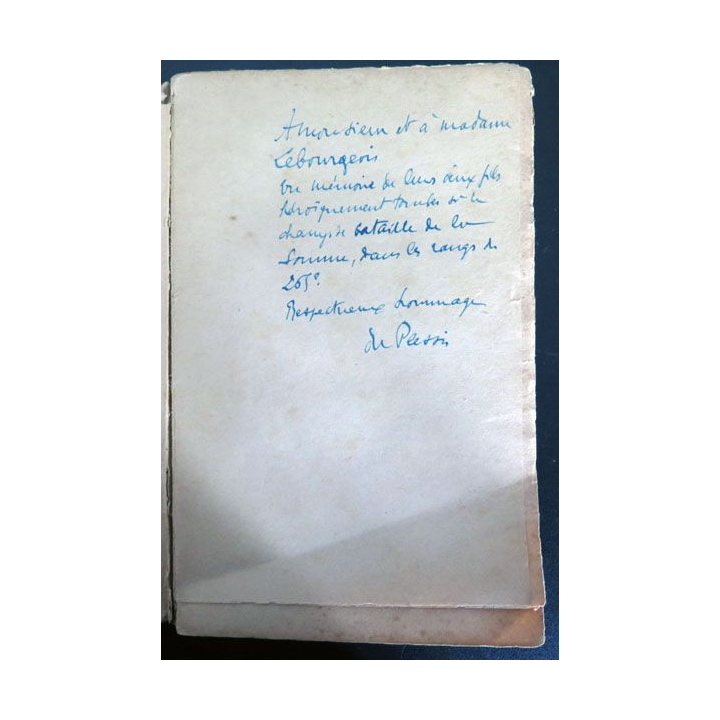 A monsieur et à madame
Lebourgeois
En mémoire de leurs deux fils
héroïquement tombés sur le
champ de bataille de la
Somme, dans les rangs du
265e.
Respectueux hommage
du Plessis